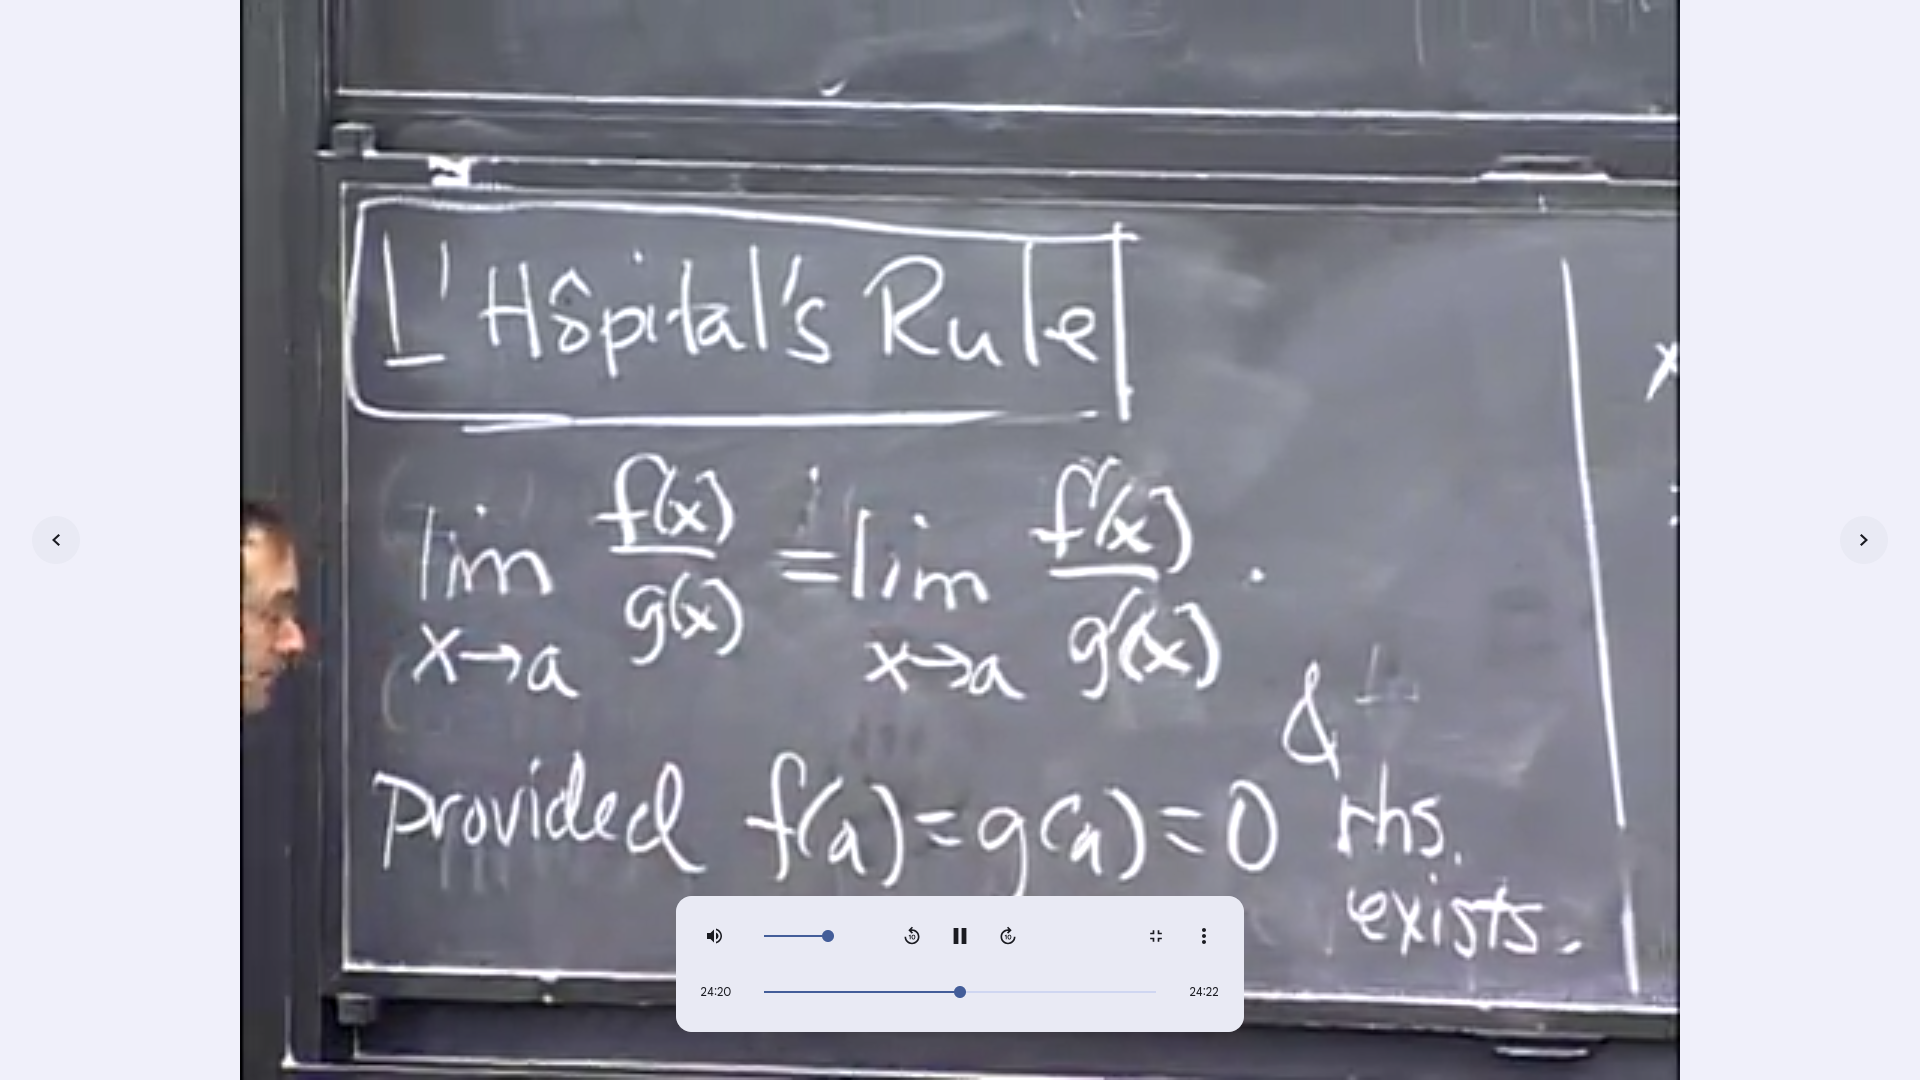 L'Hôpital's Rule
lim f(x)/g(x) = lim f'(x)/g'(x) .
x→a x→a
provided f(a) = g(a) = 0 & rhs.
exists.
x
24:20
24:22